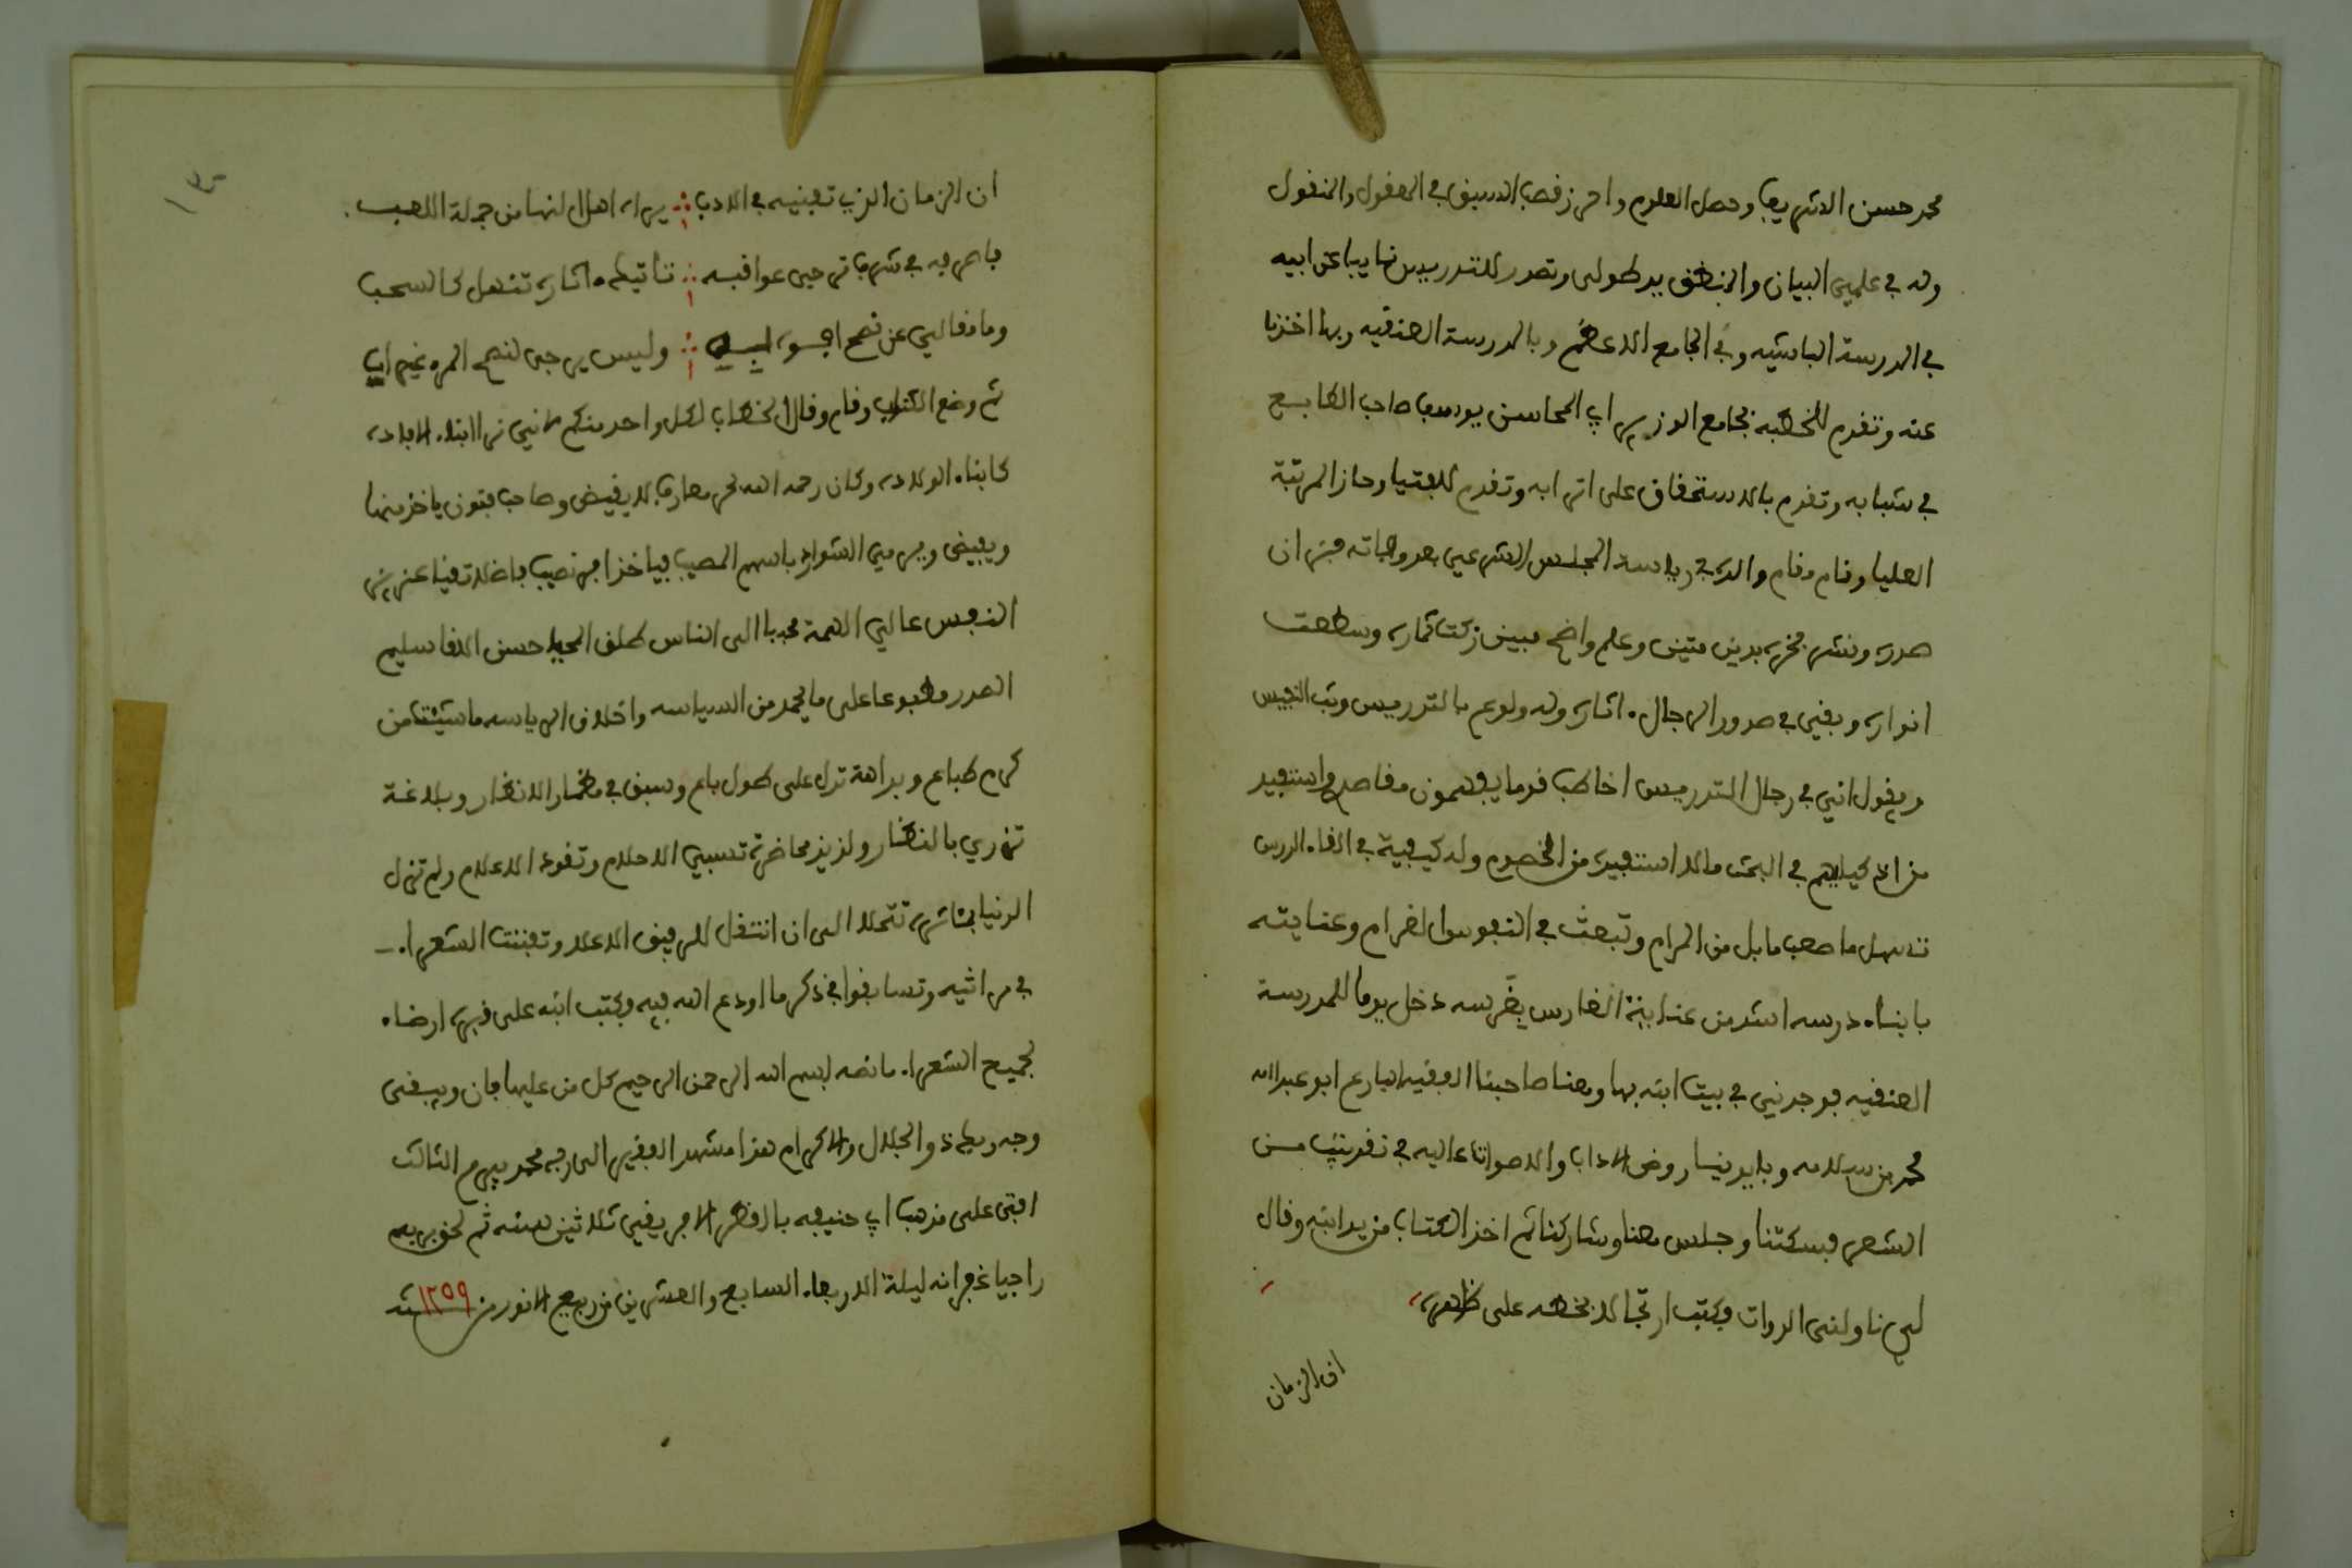 محمد حسن الشريف وحصل العلوم واحرز قصب السبق في المعقول والمنقول
وله في علمي البيان والمنطق يد طولى وتصدر للتدريس نايبا عن ابيه
في المدرسة الباشيه وفي الجامع الاعظم وبالمدرسة العنقيه وبها اخذنا
عنه وتقدم للخطبه بجامع الوزير ابي المحاسن يوسف صاحب الطابع
في شبابه وتقدم بالاستحقاق على اترابه وتقدم للفتيا وحاز المرتبة
العليا وقام مقام والده في رياسة المجلس الشرعي بعد وفاته فزان
صدره ونشر فخره بدين متين وعلم واضح مبين زكت ثماره وسطعت
انواره وبقي في صدور الرجال ءاثاره وله ولوع بالتدريس وبث النفيس
ويقول اني في رجال التدريس اخاطب قوما يفهمون مقاصدي واستفيد
من اذكياهم في البحث مالا استفيده من الخصوم وله كيفية في القاء الدرس
تسهل ما صعب مابل من المرام وتبعث في النفوس الغرام وعنايته
بابناء درسه اشد من عناية الغارس بغرسه دخل يوما للمدرسة
العنقيه فوجدني في بيت ابنه بها ومعنا صاحبنا الفقيه البارع ابو عبد الله
محمد بن سلامه وبايدينا روض الاداب والاصوات عاليه في تفريقنا من
الشعر فسكتنا وجلس معنا وشاركنا ثم اخذ الكتاب من يد ابنه وقال
لي ناولني الدوات وكتب ارتجالا بخطه على ظهره
ان الزمان
ان الزمان الذي تفنيه في الادب ∴ يراه اهل النهى من جملة اللعب
فاصرفه في شرف ترجى عواقبه ∴ تاتيك ءاثاره تنهل كالسحب
وما مقالي عن نصح افوه به ∴ وليس يرجى لنصح المرء غير اب
ثم وضع الكتاب وقام وقال الخطاب لكل واحد منكم لاني نرى ابناء الافاده
كابناء الولاده وكان رحمه الله بحر معارف لا يغيض وصاحب فنون ياخذ منها
ويفيض ويرمي الشوارد باسهم المصيب فياخذ اوفر نصيب فاضلا تقيا عزيز
النفس عالي الهمة محببا الى الناس طلق المحيا حسن اللقا سليم
الصدر مطبوعا على ما يحمد من السياسه واخلاق الرياسه ما شيئت من
كرم طباع وبراهة تدل على طول باع وسبق في مضمار الانظار وبلاغة
تزري بالنضار ولذيذ محاضرة تسبي الاحلام وتقود الاعلام ولم تزل
الدنيا بمثاثره تتحلا الى ان انتقل للرفيق الاعلا وتفننت الشعراء
في مراثيه وتسابقوا في ذكر ما اودع الله فيه وكتب ابنه على قبره ارضاء
لجميع الشعراء ما نصه بسم الله الرحمن الرحيم كل من عليها فان ويبقى
وجه ربك ذو الجلال والاكرام هذا مشهد الفقير الى ربه محمد بيرم الثالث
افتى على مذهب ابي حنيفه بالقطر الافريقي ثلاثين سنه ثم لحق بربه
راجيا غفرانه ليلة الاربعاء السابع والعشرين من ربيع الانور من سنة ١٢٥٩